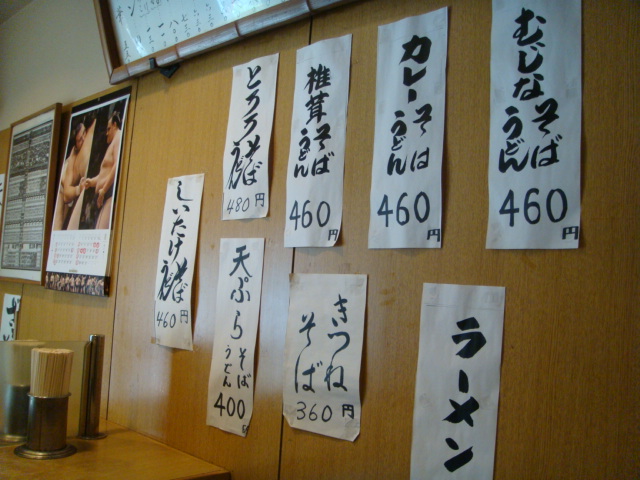 むじな そば
うどん
460円
カレー そば
うどん
460円
椎茸 そば
うどん
460円
とろろ そば
うどん
480円
ラーメン
きつね
そば
360円
天ぷら そば
うどん
400円
しいたけ そば
うどん
460円